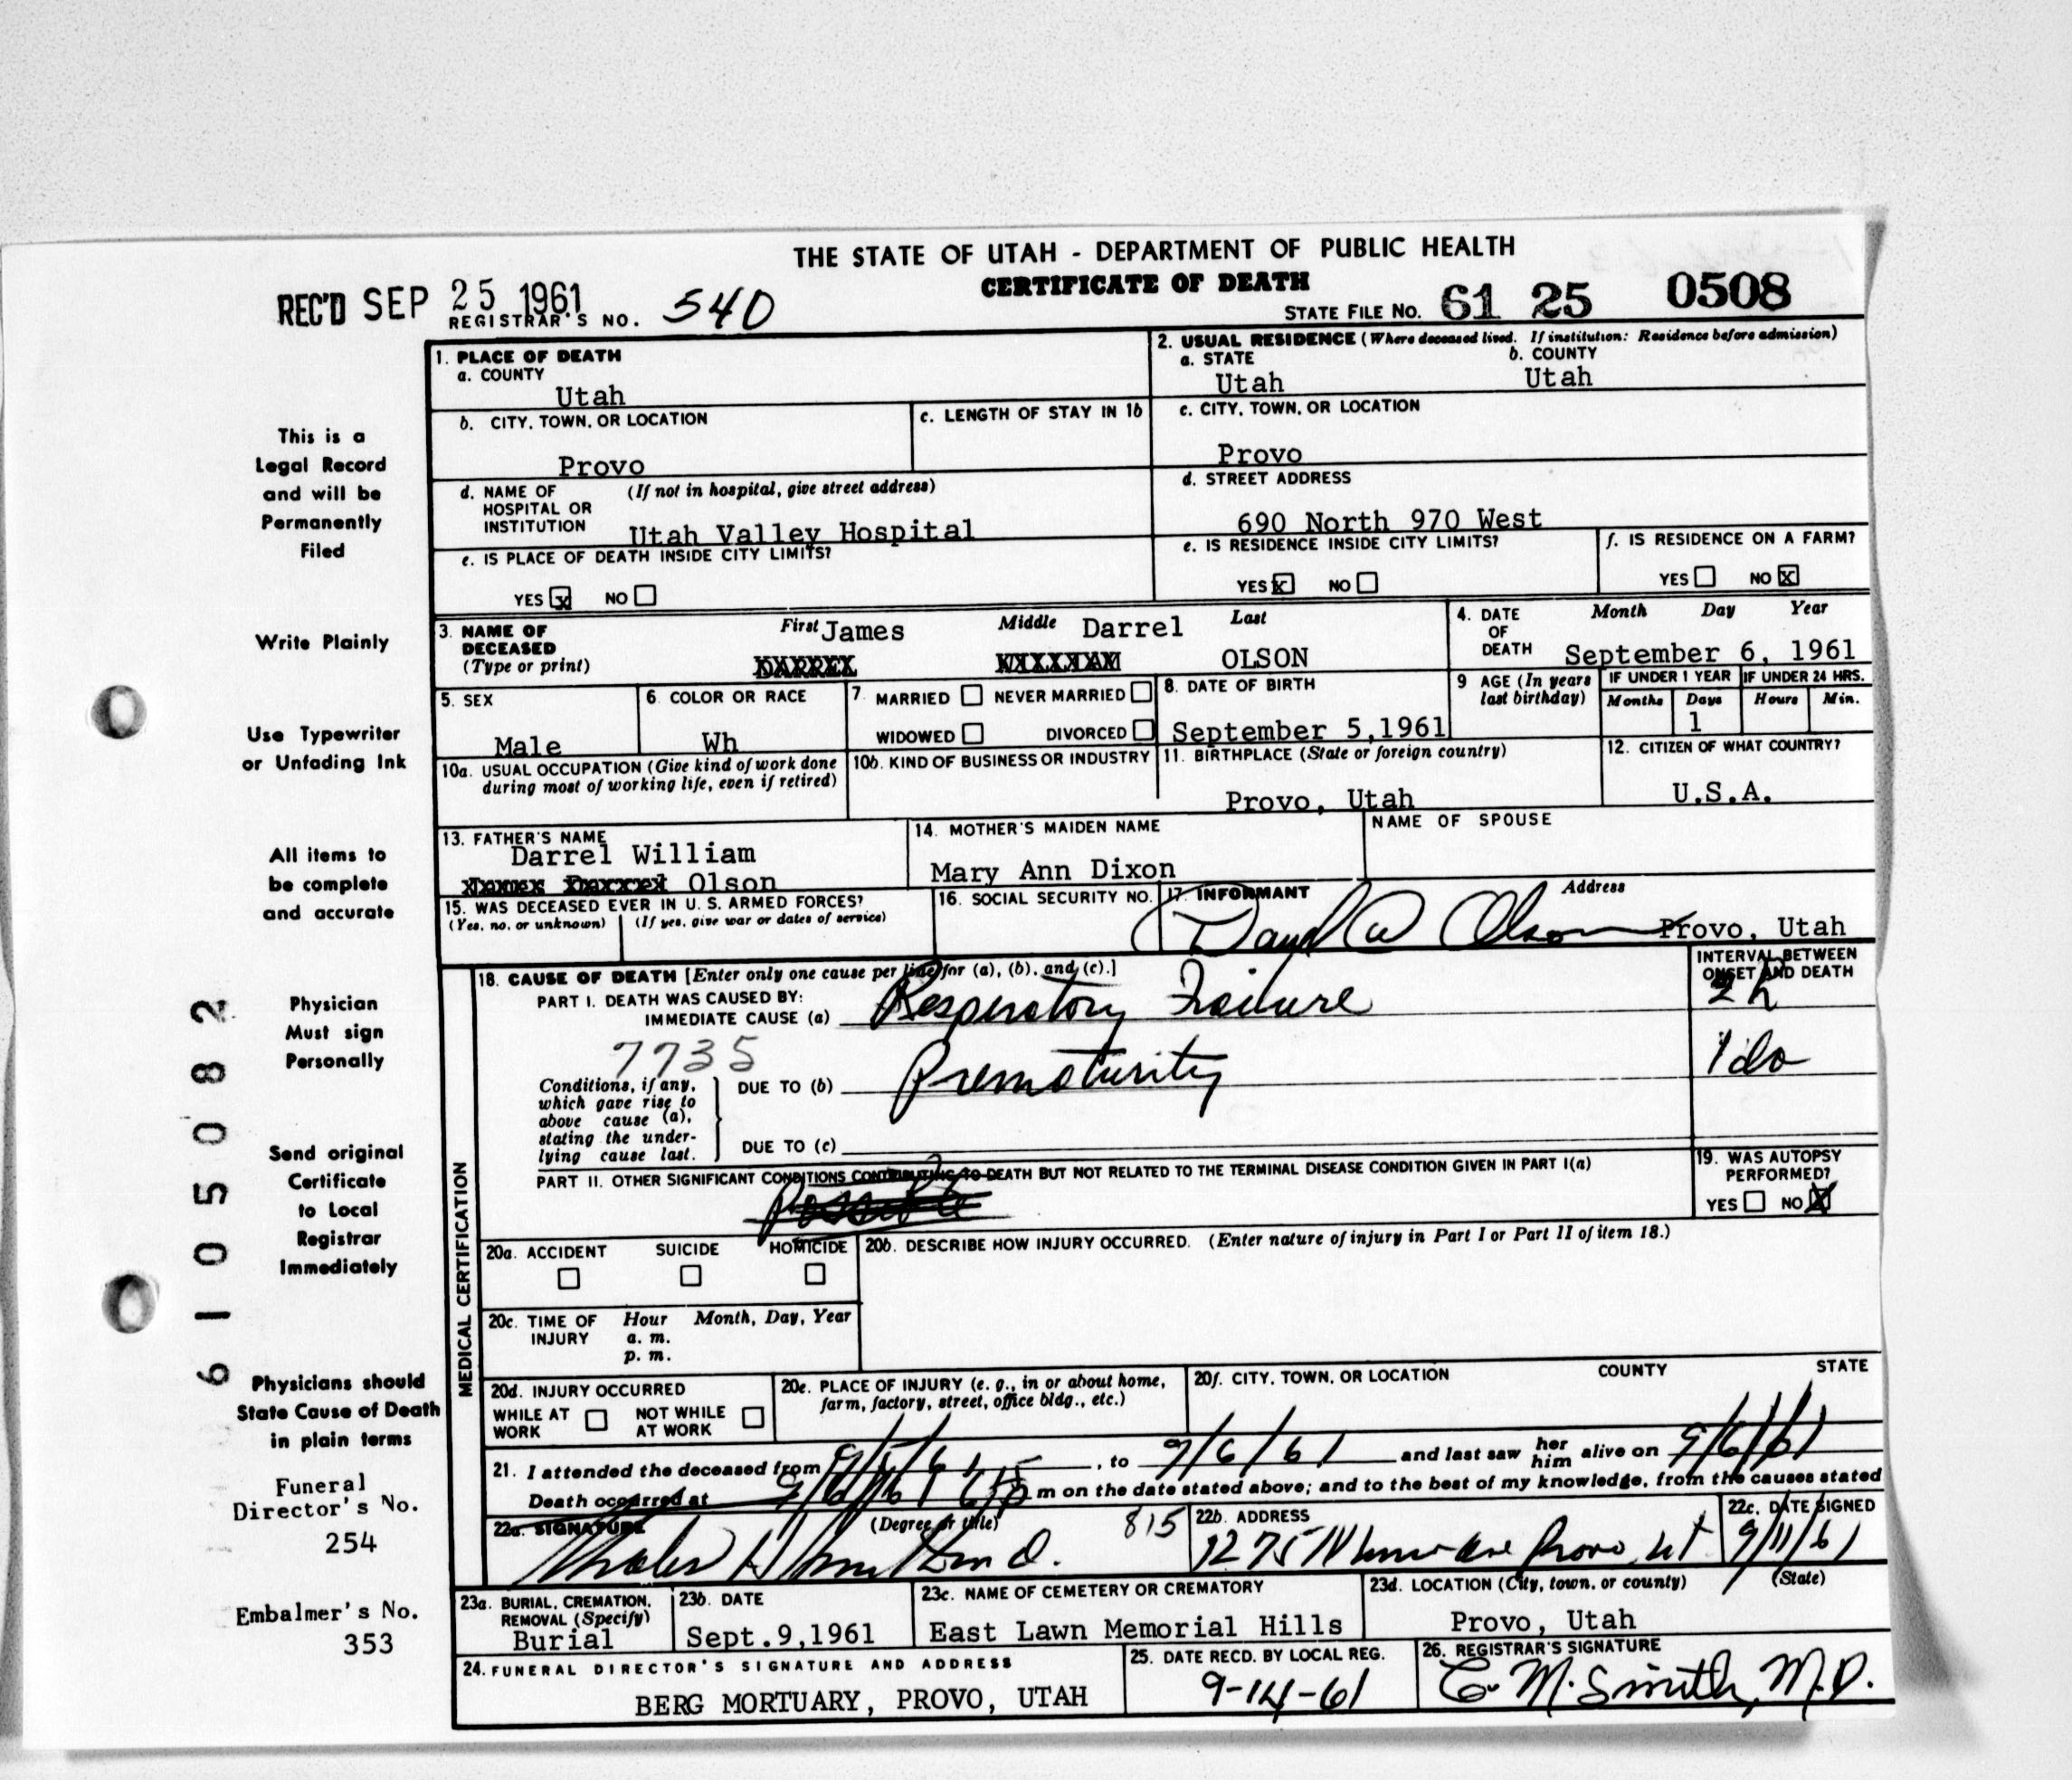 THE STATE OF UTAH - DEPARTMENT OF PUBLIC HEALTH
CERTIFICATE OF DEATH
REC'D SEP 25 1961
REGISTRAR'S NO. 540
STATE FILE NO. 61 25 0508
1. PLACE OF DEATH
a. COUNTY
Utah
2. USUAL RESIDENCE (Where deceased lived. If institution: Residence before admission)
a. STATE b. COUNTY
Utah Utah
b. CITY, TOWN, OR LOCATION
Provo
c. LENGTH OF STAY IN 1b
c. CITY, TOWN, OR LOCATION
Provo
d. NAME OF (If not in hospital, give street address)
HOSPITAL OR
INSTITUTION Utah Valley Hospital
d. STREET ADDRESS
690 North 970 West
e. IS PLACE OF DEATH INSIDE CITY LIMITS?
YES x NO
e. IS RESIDENCE INSIDE CITY LIMITS?
YES x NO
f. IS RESIDENCE ON A FARM?
YES NO x
3. NAME OF DECEASED (Type or print)
First James Middle Darrel Last
OLSON
4. DATE OF DEATH Month Day Year
September 6, 1961
5. SEX
Male
6. COLOR OR RACE
Wh
7. MARRIED NEVER MARRIED
WIDOWED DIVORCED
8. DATE OF BIRTH
September 5,1961
9 AGE (In years last birthday)
IF UNDER 1 YEAR IF UNDER 24 HRS.
Months Days Hours Min.
1
10a. USUAL OCCUPATION (Give kind of work done
during most of working life, even if retired)
10b. KIND OF BUSINESS OR INDUSTRY
11. BIRTHPLACE (State or foreign country)
Provo, Utah
12. CITIZEN OF WHAT COUNTRY?
U.S.A.
13. FATHER'S NAME
Darrel William
Olson
14. MOTHER'S MAIDEN NAME
Mary Ann Dixon
NAME OF SPOUSE
15. WAS DECEASED EVER IN U. S. ARMED FORCES?
(Yes, no, or unknown) (If yes, give war or dates of service)
16. SOCIAL SECURITY NO.
17. INFORMANT Address
Olson Provo, Utah
18. CAUSE OF DEATH [Enter only one cause per line for (a), (b), and (c).]
INTERVAL BETWEEN
ONSET AND DEATH
PART I. DEATH WAS CAUSED BY:
IMMEDIATE CAUSE (a) Respiratory Failure 2 h
7735
Conditions, if any,
which gave rise to
above cause (a),
stating the under-
lying cause last.
DUE TO (b) Prematurity
DUE TO (c)
PART II. OTHER SIGNIFICANT CONDITIONS CONTRIBUTING TO DEATH BUT NOT RELATED TO THE TERMINAL DISEASE CONDITION GIVEN IN PART I(a)
Possible
19. WAS AUTOPSY
PERFORMED?
YES NO X
MEDICAL CERTIFICATION
20a. ACCIDENT SUICIDE HOMICIDE
20b. DESCRIBE HOW INJURY OCCURRED. (Enter nature of injury in Part I or Part II of item 18.)
20c. TIME OF INJURY Hour Month, Day, Year
a. m.
p. m.
20d. INJURY OCCURRED
WHILE AT WORK NOT WHILE AT WORK
20e. PLACE OF INJURY (e. g., in or about home,
farm, factory, street, office bldg., etc.)
20f. CITY, TOWN, OR LOCATION COUNTY STATE
21. I attended the deceased from 9/5/61, to 9/6/61 and last saw her him alive on 9/6/61
Death occurred at 9/6/61 m on the date stated above; and to the best of my knowledge, from the causes stated
22a. SIGNATURE (Degree or title) 815
22b. ADDRESS
1275 N Provo Ut
22c. DATE SIGNED
9/11/61
23a. BURIAL, CREMATION,
REMOVAL (Specify)
Burial
23b. DATE
Sept.9,1961
23c. NAME OF CEMETERY OR CREMATORY
East Lawn Memorial Hills
23d. LOCATION (City, town, or county) (State)
Provo, Utah
24. FUNERAL DIRECTOR'S SIGNATURE AND ADDRESS
BERG MORTUARY, PROVO, UTAH
25. DATE RECD. BY LOCAL REG.
9-14-61
26. REGISTRAR'S SIGNATURE
C. M. Smith, M.D.
This is a
Legal Record
and will be
Permanently
Filed
Write Plainly
Use Typewriter
or Unfading Ink
All items to
be complete
and accurate
Physician
Must sign
Personally
Send original
Certificate
to Local
Registrar
Immediately
Physicians should
State Cause of Death
in plain terms
Funeral
Director's No.
254
Embalmer's No.
353
6105082